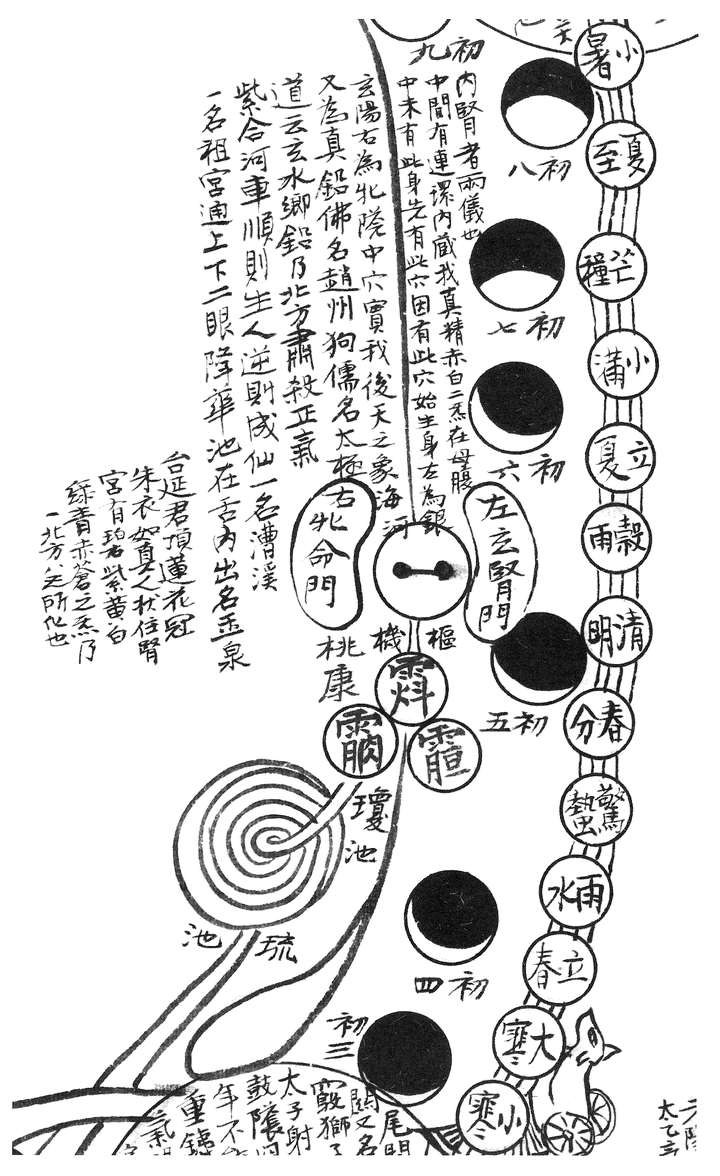 小暑
夏至
芒種
小滿
立夏
穀雨
清明
春分
驚蟄
雨水
立春
大寒
小寒
初九
初八
初七
初六
初五
初四
初三
內腎者兩儀也
中間有連環內藏我真精赤白二炁在母腹
中未有此身先有此穴因有此穴始生身左為銀
玄陽右為牝陰中穴實我後天之象海河
又為真鉛佛名趙州狗儒名太極
道云玄水鄉鉛乃北方肅殺正氣
紫合河車順則生人逆則成仙一名漕溪
一名祖宮通上下二眼降華池在舌內出名玉泉
台延君頂蓮花冠
朱衣如真人狀住腎
宮有碧紫黃白
綠青赤蒼之炁乃
北方所化也
左玄腎門
右牝命門
樞機
桃康
瓊池
琉池
尾閭
關又名
窾獅子
太子射
鼓隂
年不
重鐵
氣
太乙